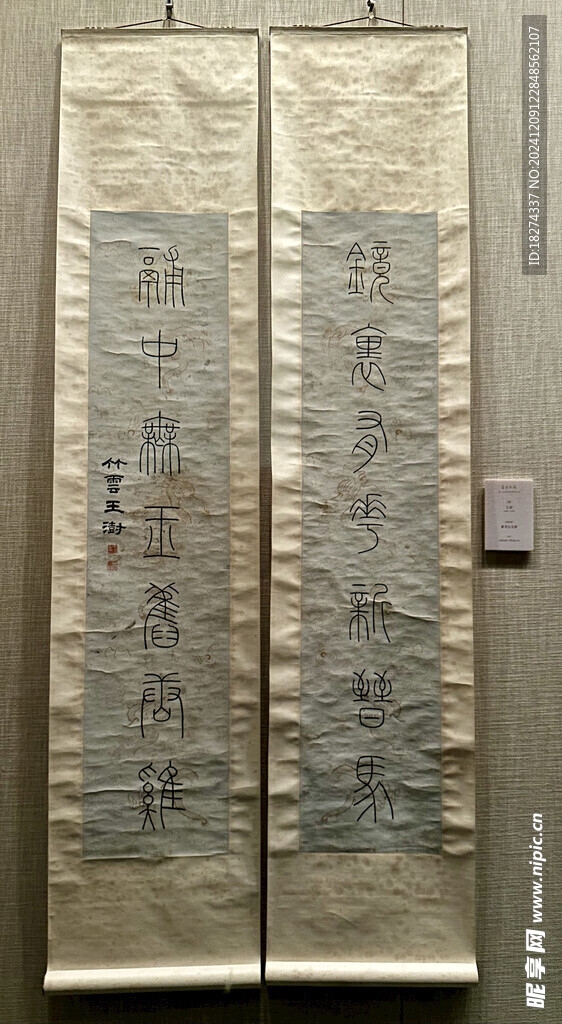 鏡裏有華新晉馬
鬴中無玉舊唐雞
竹雲王澍
ID:18274337 NO:20241209122848562107
昵享网 www.nipic.cn